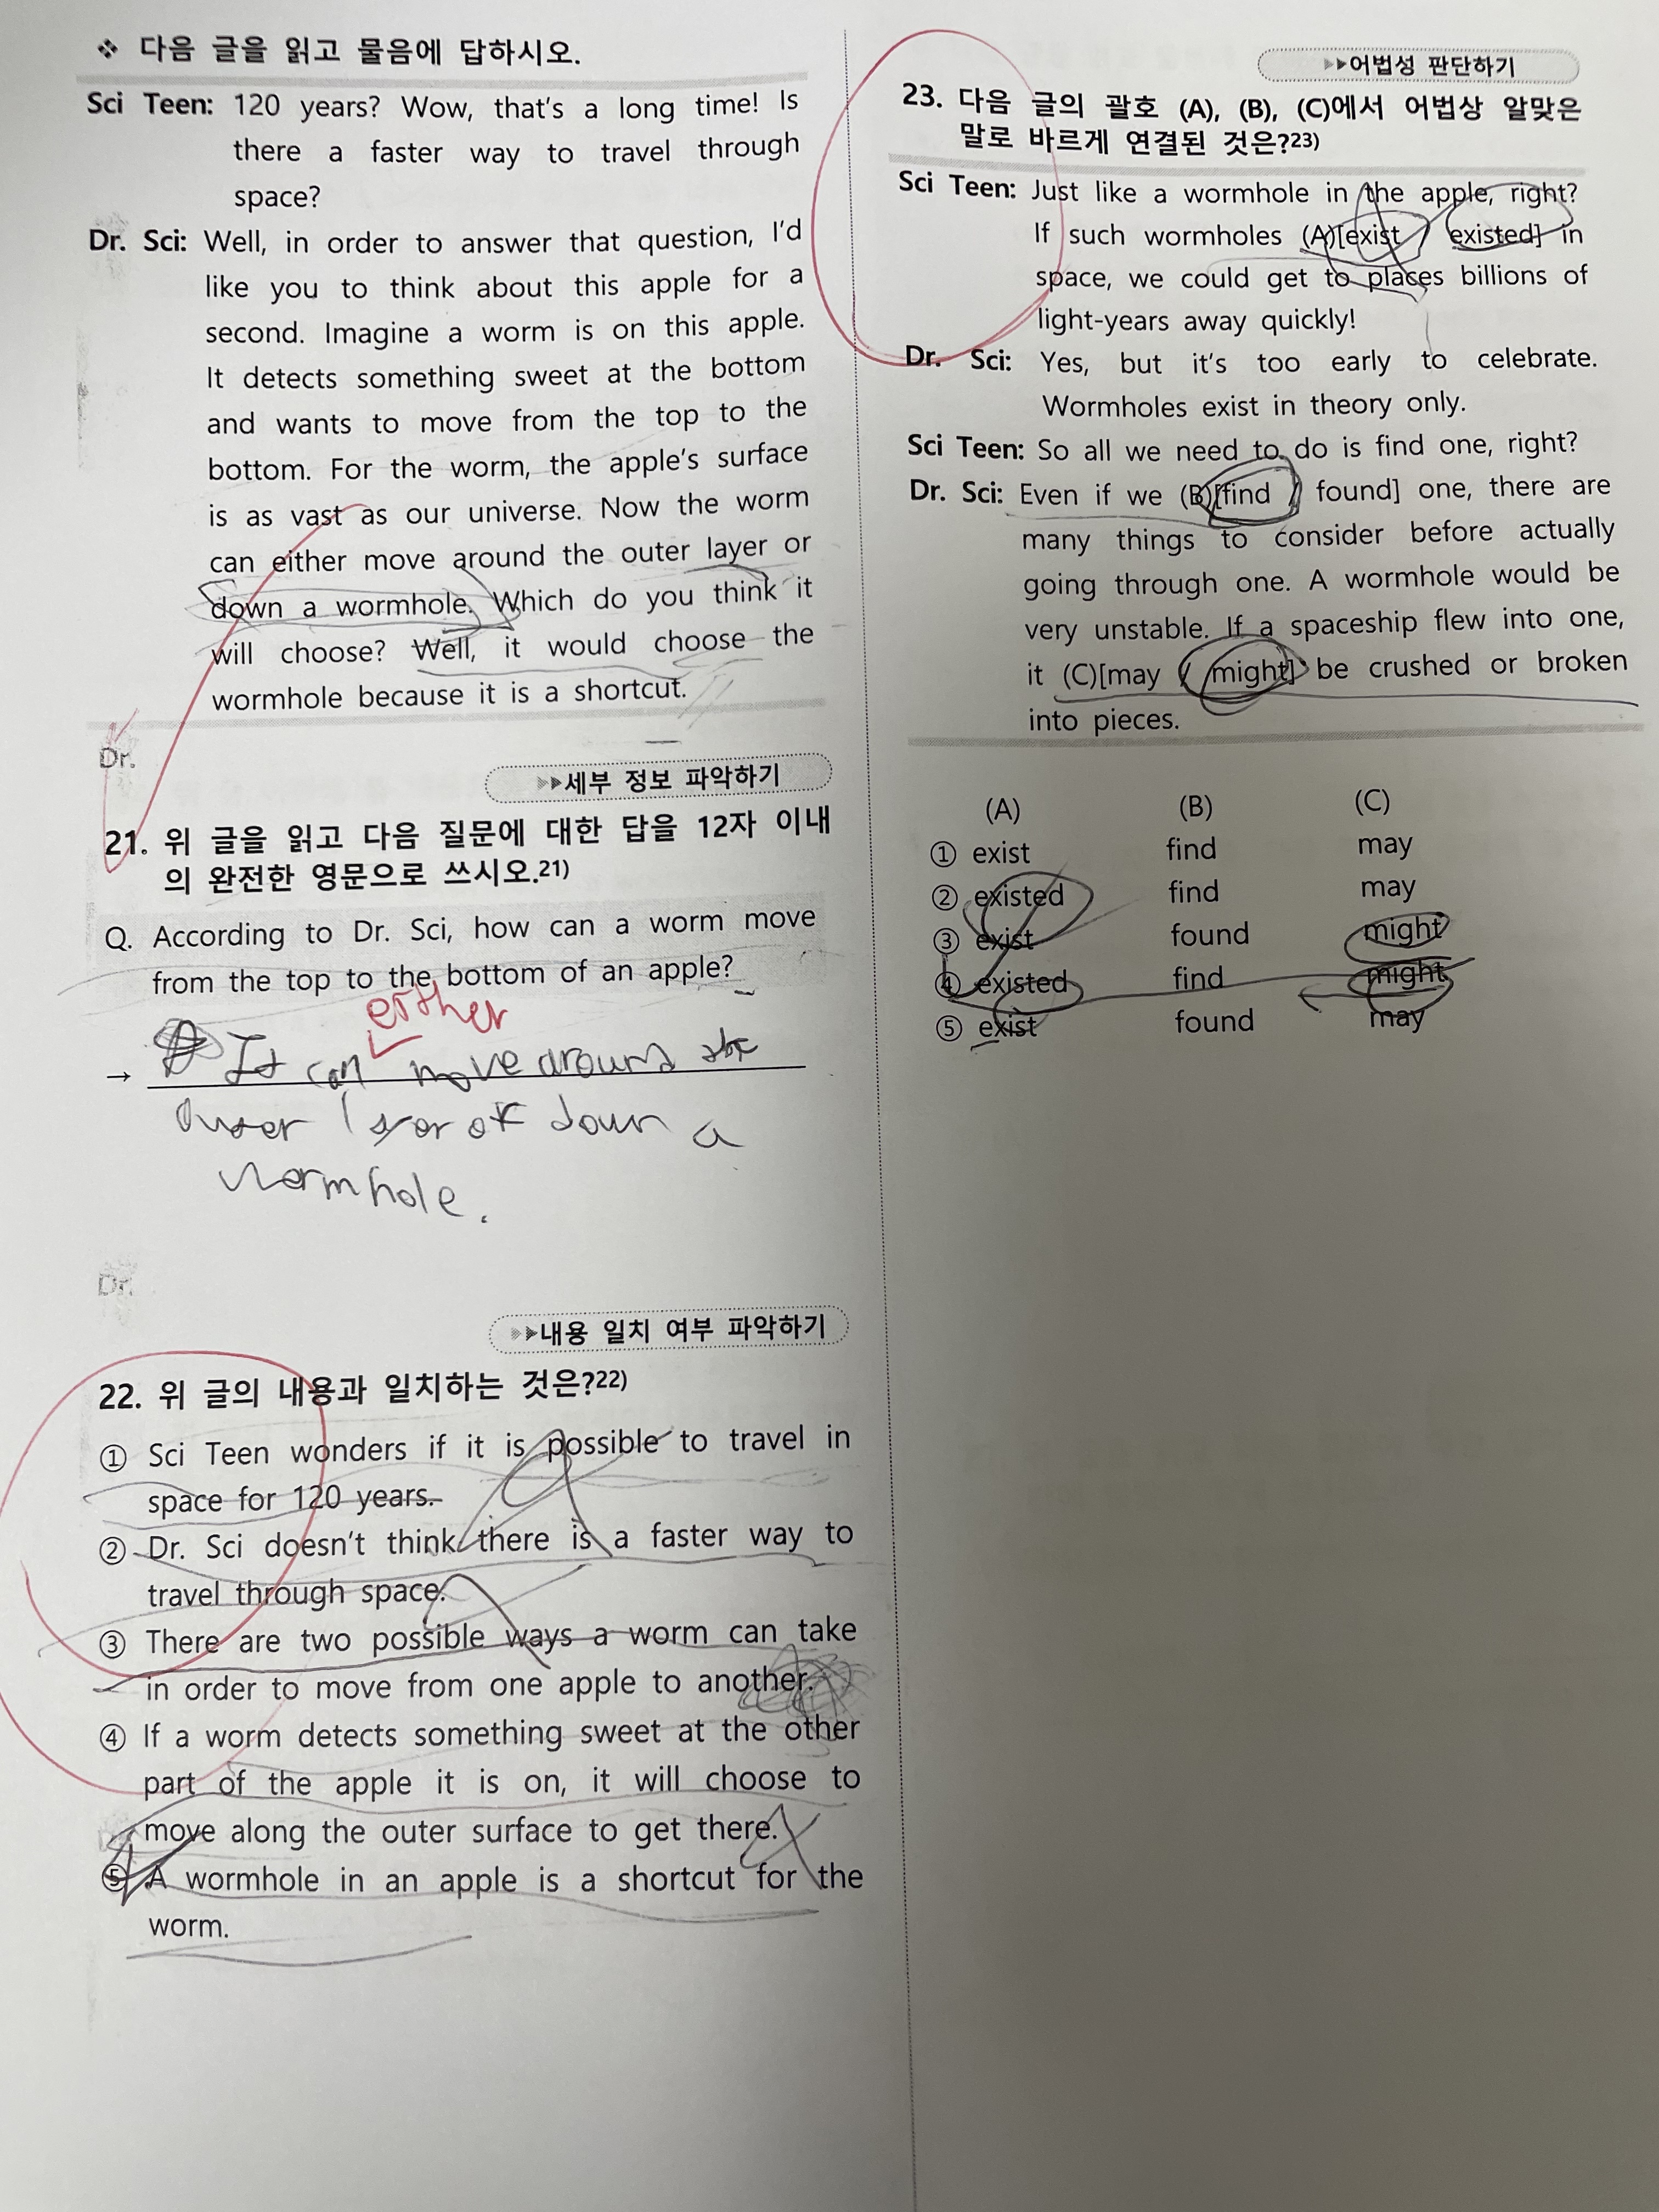 ❖ 다음 글을 읽고 물음에 답하시오.
Sci Teen: 120 years? Wow, that's a long time! Is
there a faster way to travel through
space?
Dr. Sci: Well, in order to answer that question, I'd
like you to think about this apple for a
second. Imagine a worm is on this apple.
It detects something sweet at the bottom
and wants to move from the top to the
bottom. For the worm, the apple's surface
is as vast as our universe. Now the worm
can either move around the outer layer or
down a wormhole. Which do you think it
will choose? Well, it would choose the
wormhole because it is a shortcut.
Dr.
▸▸세부 정보 파악하기
21. 위 글을 읽고 다음 질문에 대한 답을 12자 이내
의 완전한 영문으로 쓰시오.21)
Q. According to Dr. Sci, how can a worm move
from the top to the bottom of an apple?
either
→ It can move around the
outer layer or down a
wormhole.
Dr.
▸▸내용 일치 여부 파악하기
22. 위 글의 내용과 일치하는 것은?22)
① Sci Teen wonders if it is possible to travel in
space for 120 years.
② Dr. Sci doesn't think there is a faster way to
travel through space.
③ There are two possible ways a worm can take
in order to move from one apple to another.
④ If a worm detects something sweet at the other
part of the apple it is on, it will choose to
move along the outer surface to get there.
⑤ A wormhole in an apple is a shortcut for the
worm.
▸▸어법성 판단하기
23. 다음 글의 괄호 (A), (B), (C)에서 어법상 알맞은
말로 바르게 연결된 것은?23)
Sci Teen: Just like a wormhole in the apple, right?
If such wormholes (A)[exist / existed] in
space, we could get to places billions of
light-years away quickly!
Dr. Sci: Yes, but it's too early to celebrate.
Wormholes exist in theory only.
Sci Teen: So all we need to do is find one, right?
Dr. Sci: Even if we (B)[find / found] one, there are
many things to consider before actually
going through one. A wormhole would be
very unstable. If a spaceship flew into one,
it (C)[may / might] be crushed or broken
into pieces.
(A) (B) (C)
① exist find may
② existed find may
③ exist found might
④ existed find might
⑤ exist found may